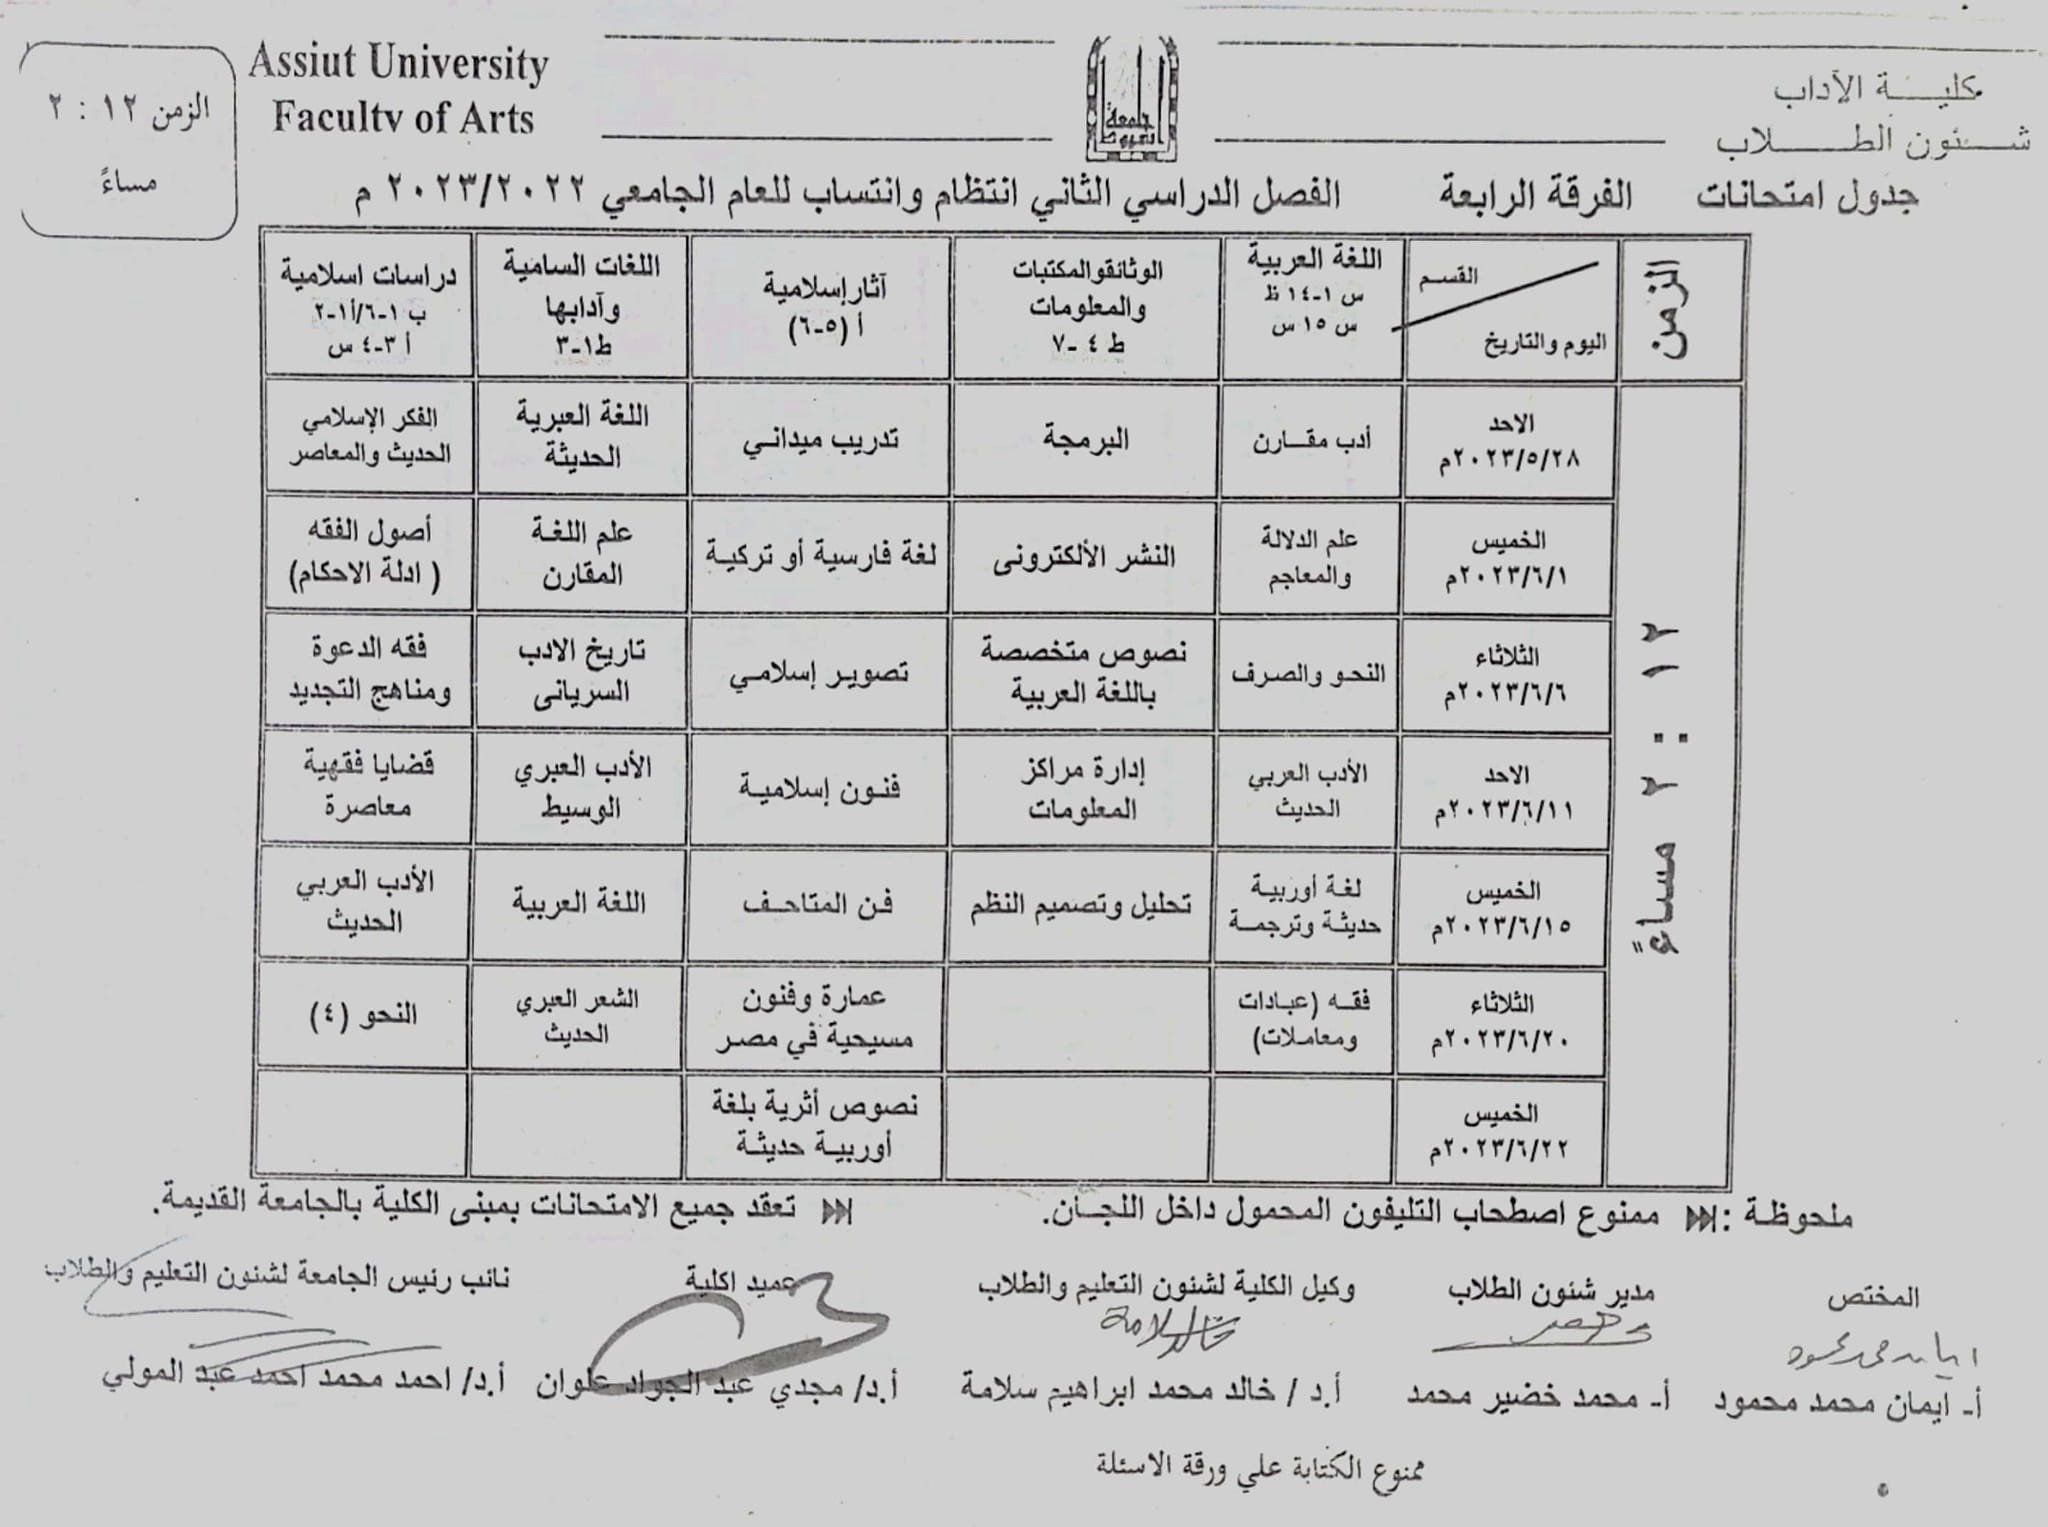 كليـــة الآداب
شــئون الطـــــلاب
Assiut University
Faculty of Arts
جامعة
أسيوط
الزمن ١٢ : ٢
مساءً
جدول امتحانات الفرقة الرابعة الفصل الدراسي الثاني انتظام وانتساب للعام الجامعي ٢٠٢٣/٢٠٢٢ م
الزمن
القسم
اليوم والتاريخ
اللغة العربية
س ١-١٤ ظ
س ١٥ س
الوثائقوالمكتبات
والمعلومات
ط ٤ -٧
آثار إسلامية
أ (٥-٦)
اللغات السامية
وآدابها
ط١-٣
دراسات اسلامية
ب ١-٦/أ١-٢
أ ٣-٤ س
١٢ : ٢ مساءً
الاحد
٢٠٢٣/٥/٢٨م
أدب مقـــارن
البرمجة
تدريب ميدانـي
اللغة العبرية
الحديثة
الفكر الإسلامي
الحديث والمعاصر
الخميس
٢٠٢٣/٦/١م
علم الدلالة
والمعاجم
النشر الألكترونى
لغة فارسية أو تركيـة
علم اللغـة
المقارن
أصول الفقه
( ادلة الاحكام)
الثلاثاء
٢٠٢٣/٦/٦م
النحـو والصرف
نصوص متخصصة
باللغة العربية
تصويـر إسلامـي
تاريخ الادب
السريانى
فقه الدعوة
ومناهج التجديد
الاحد
٢٠٢٣/٦/١١م
الأدب العربي
الحديث
إدارة مراكز
المعلومات
فنـون إسلاميـة
الأدب العبري
الوسيط
قضايا فقهية
معاصرة
الخميس
٢٠٢٣/٦/١٥م
لغـة أوربيـة
حديثـة وترجمـة
تحليل وتصميم النظم
فـن المتاحـف
اللغة العربية
الأدب العربي
الحديث
الثلاثاء
٢٠٢٣/٦/٢٠م
فقـه (عبـادات
ومعامـلات)
عمارة وفنون
مسيحية في مصـر
الشعر العبري
الحديث
النحو (٤)
الخميس
٢٠٢٣/٦/٢٢م
نصوص أثرية بلغة
أوربيـة حديثـة
ملحوظـة : ممنوع اصطحاب التليفون المحمول داخل اللجـان. تعقد جميع الامتحانات بمبنى الكلية بالجامعة القديمة.
المختص مدير شئون الطلاب وكيل الكلية لشئون التعليم والطلاب عميد اكلية نائب رئيس الجامعة لشئون التعليم والطلاب
أ- ايمان محمد محمود أ- محمد خضير محمد أ.د / خالد محمد ابراهيم سلامة أ.د/ مجدي عبد الجواد علوان أ.د/ احمد محمد احمد عبد المولي
ممنوع الكتابة علي ورقة الاسئلة